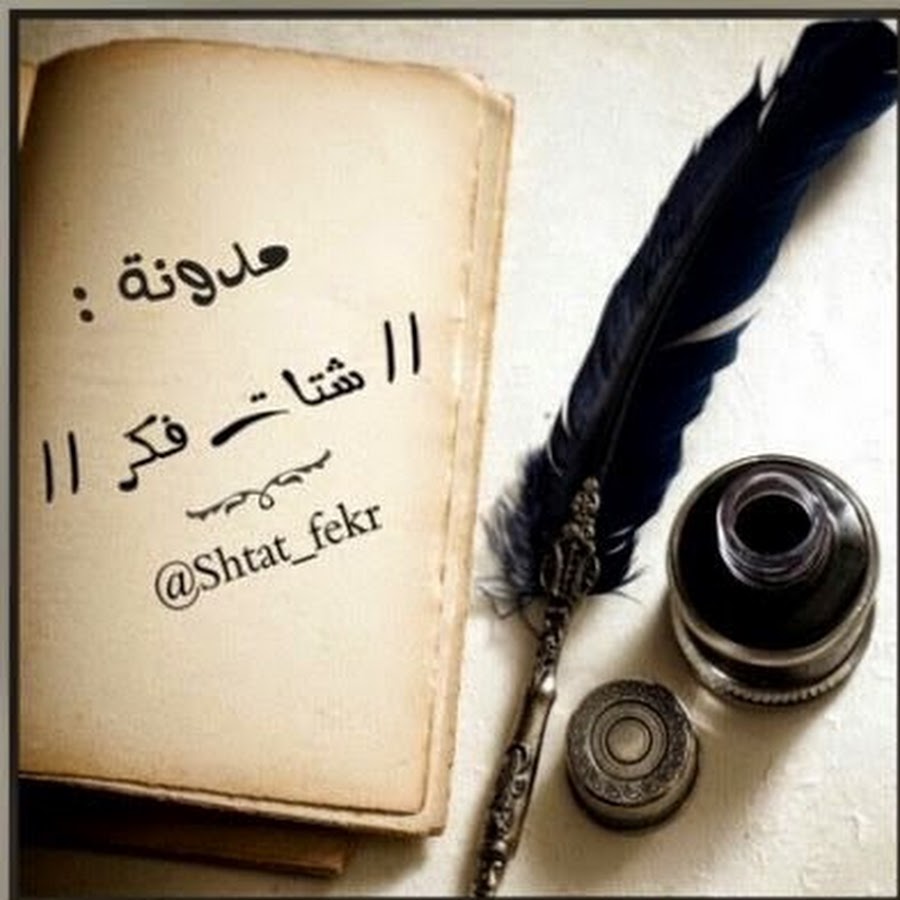 مدونة :
|| شتات فكر ||
@Shtat_fekr